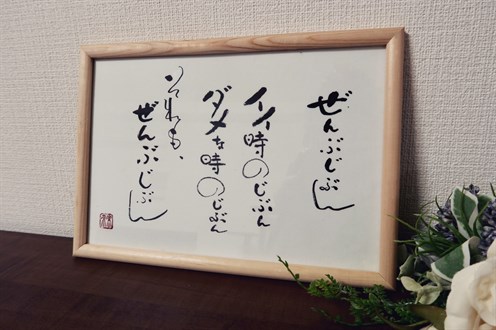 ぜんぶじぶん
イイ時のじぶん
ダメな時のじぶん
それも、
ぜんぶじぶん